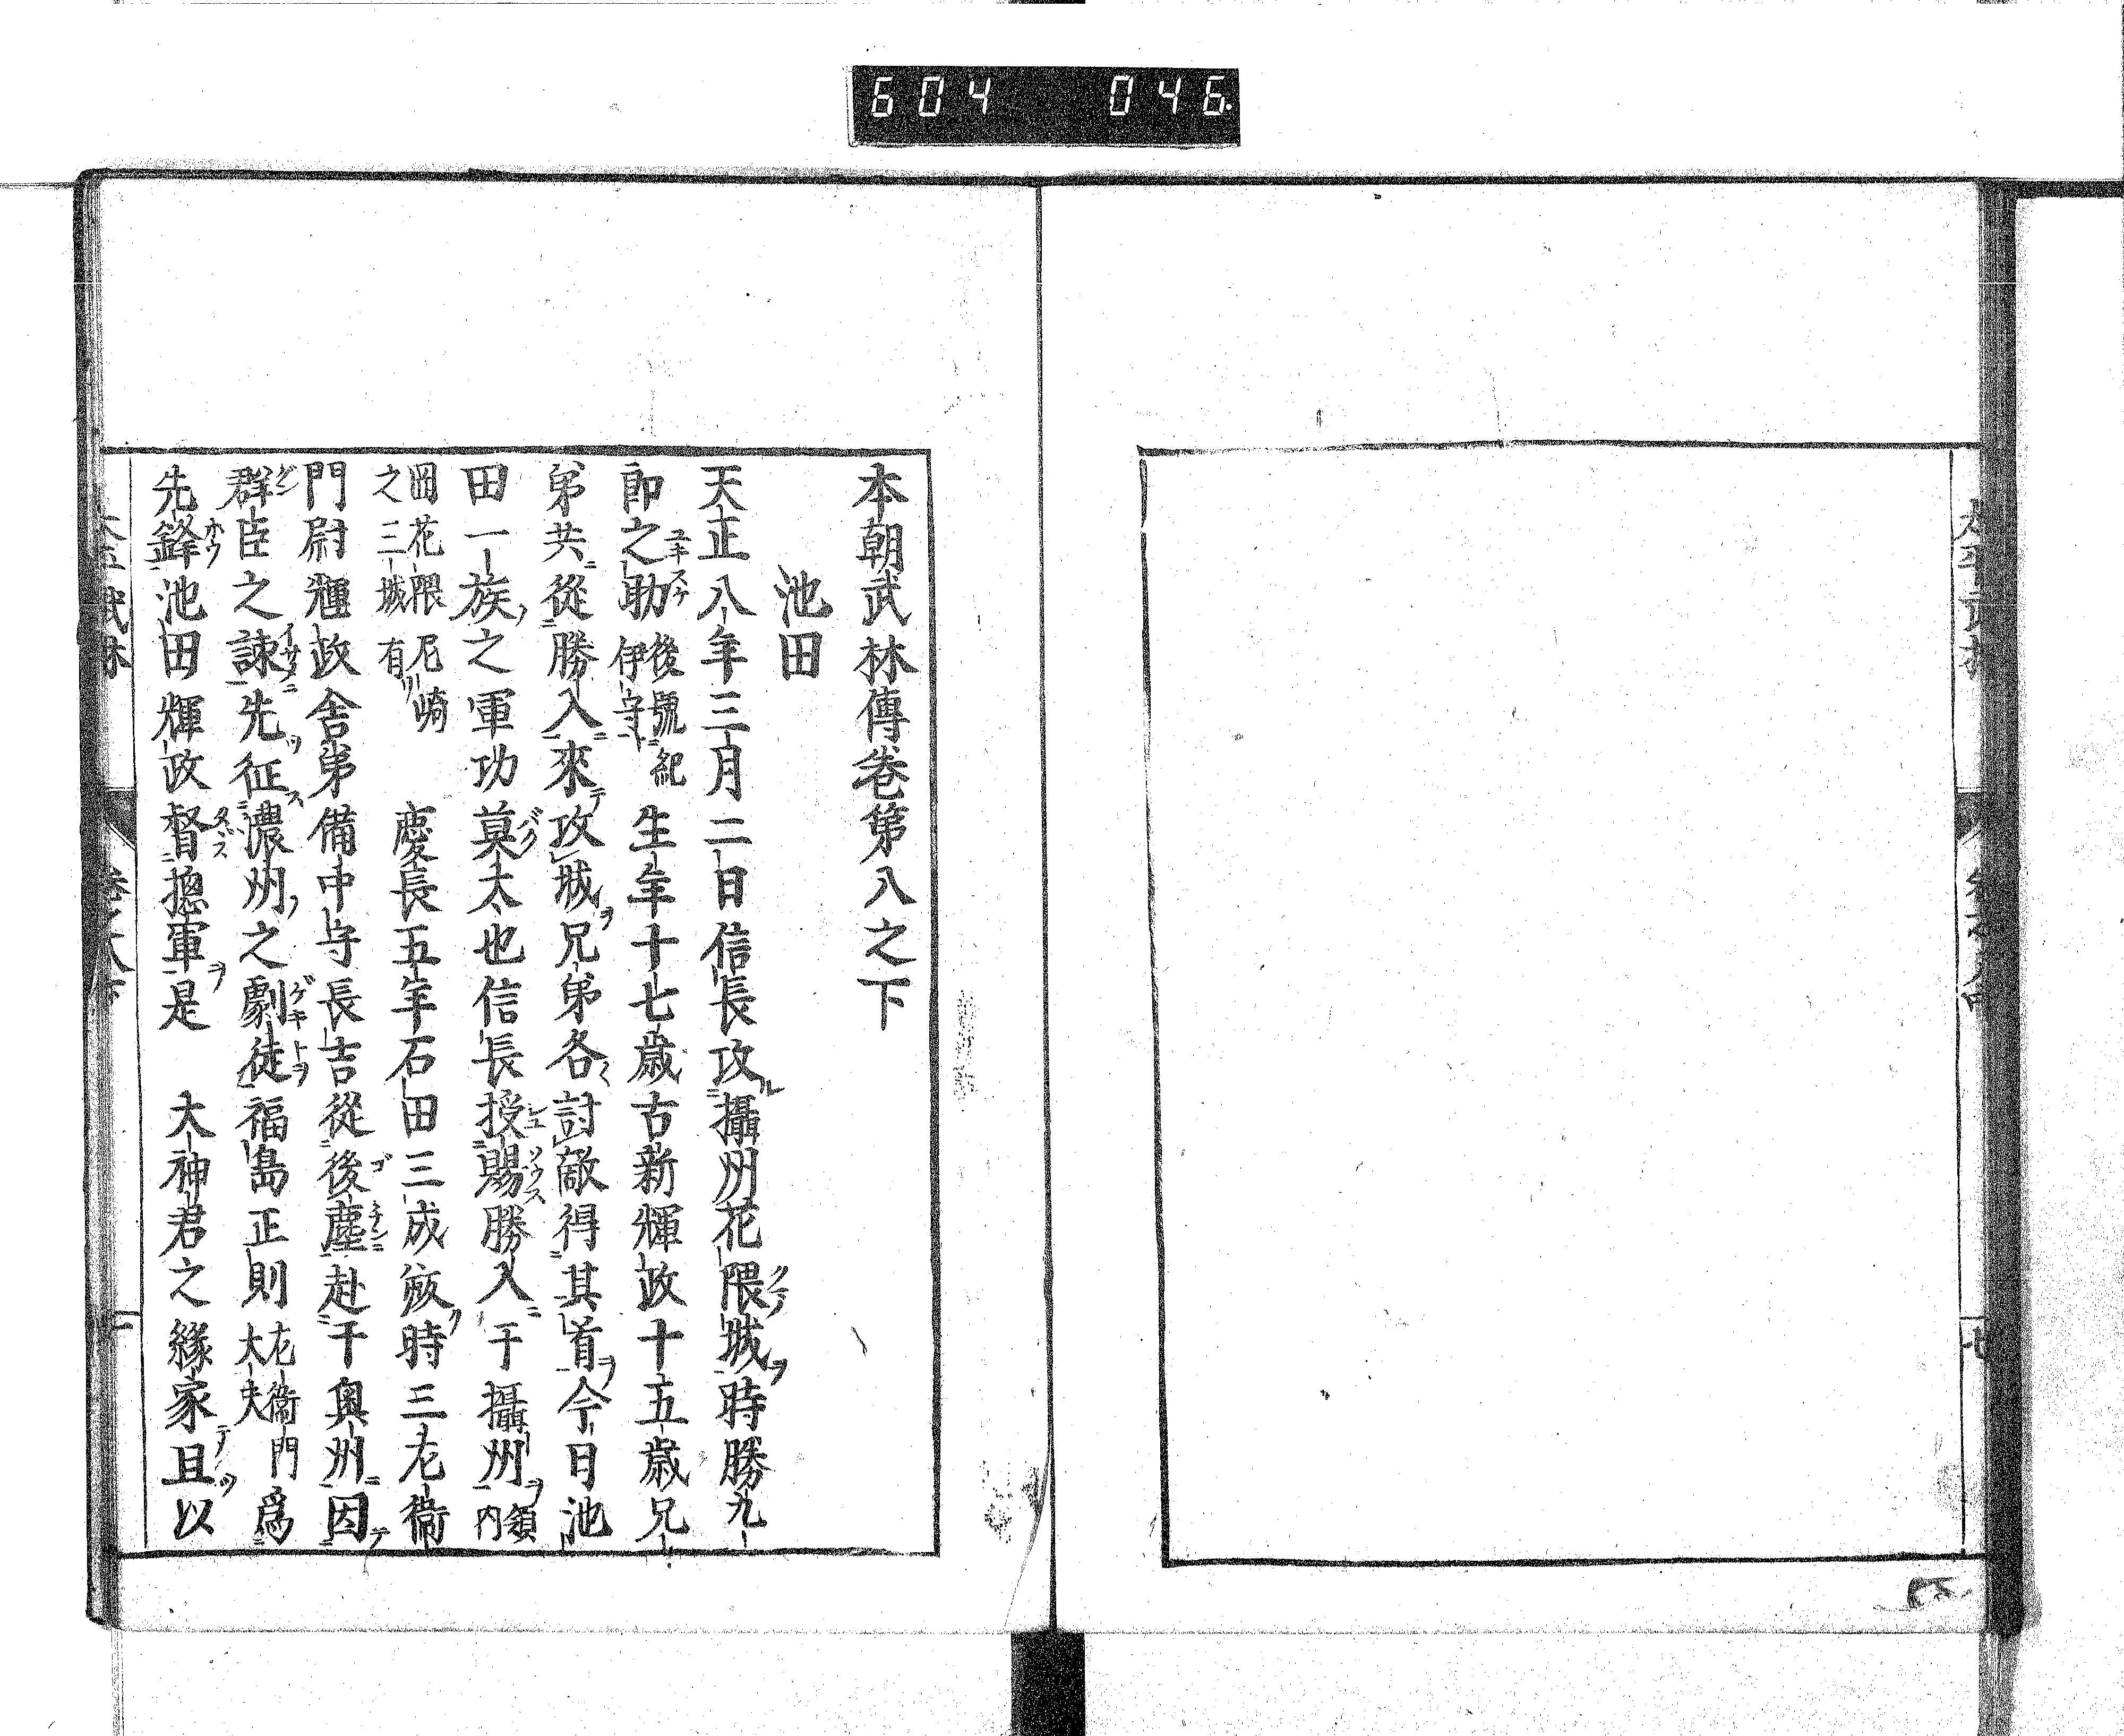 604 046
本朝武林傳卷第八之下
池田
天正八年三月二日信長攻攝州花隈城時勝九
郎之助後號紀伊守生年十七歳古新輝政十五歳兄
弟共從勝入來攻城兄弟各討敵得其首今日池
田一族之軍功莫太也信長授賜勝入于攝州内領
岡花隈尼崎之三城有慶長五年石田三成叛時三左衞
門尉輝政舍弟備中守長吉從後塵赴于奥州因
群臣之諫先征濃州之劇徒福島正則左衞門大夫爲
先鋒池田輝政督摠軍是 大神君之緣家且以